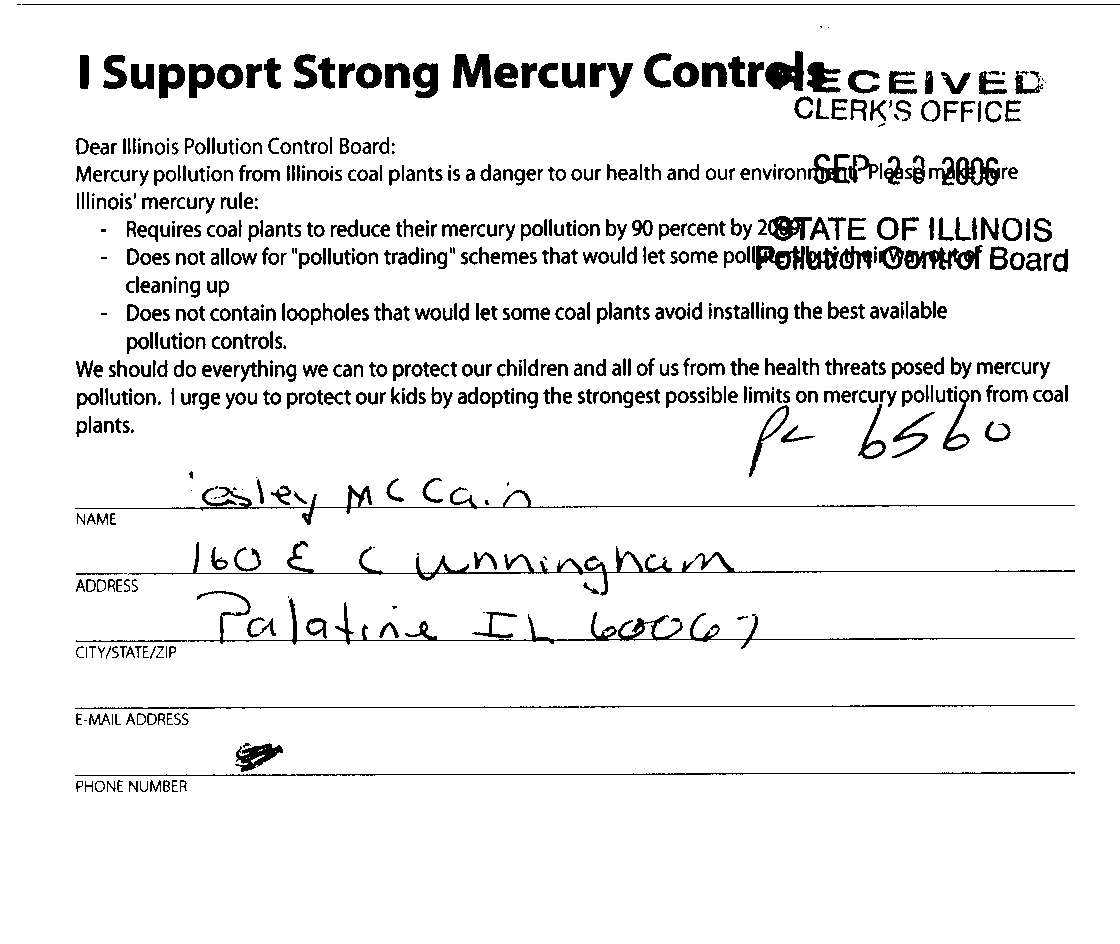 I Support Strong Mercury Controls
RECEIVED
CLERK'S OFFICE
SEP 2 2006
STATE OF ILLINOIS
Pollution Control Board
Dear Illinois Pollution Control Board:
Mercury pollution from Illinois coal plants is a danger to our health and our environment. Please make sure
Illinois' mercury rule:
- Requires coal plants to reduce their mercury pollution by 90 percent by
- Does not allow for "pollution trading" schemes that would let some polluters buy their way out of
cleaning up
- Does not contain loopholes that would let some coal plants avoid installing the best available
pollution controls.
We should do everything we can to protect our children and all of us from the health threats posed by mercury
pollution. I urge you to protect our kids by adopting the strongest possible limits on mercury pollution from coal
plants.
PC 6560
McCain
NAME
160 E Cunningham
ADDRESS
Palatine IL 60067
CITY/STATE/ZIP
E-MAIL ADDRESS
PHONE NUMBER